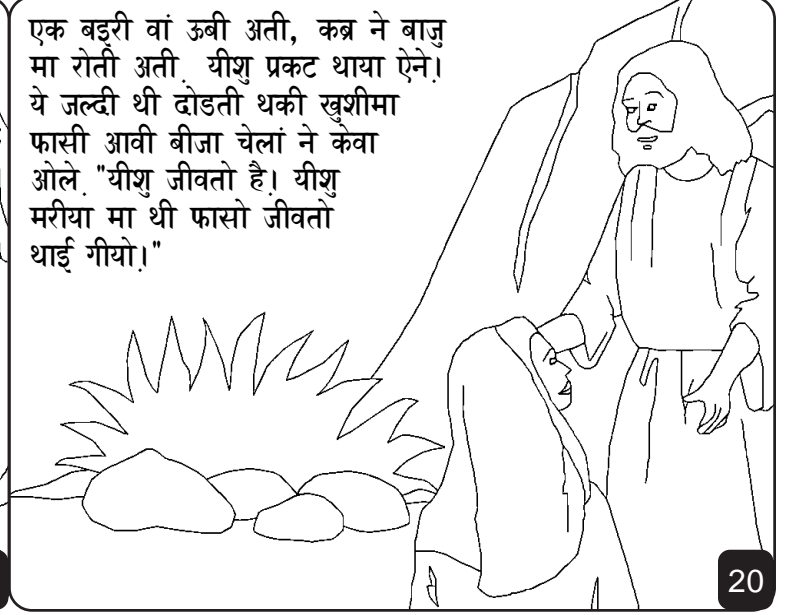 एक बइरी वां ऊबी अती, कब्र ने बाजु
मा रोती अती. यीशु प्रकट थाया ऐने।
ये जल्दी थी दोडती थकी खुशीमा
फासी आवी बीजा चेलां ने केवा
ओले. "यीशु जीवतो है। यीशु
मरीया मा थी फासो जीवतो
थाई गीयो.।"
20